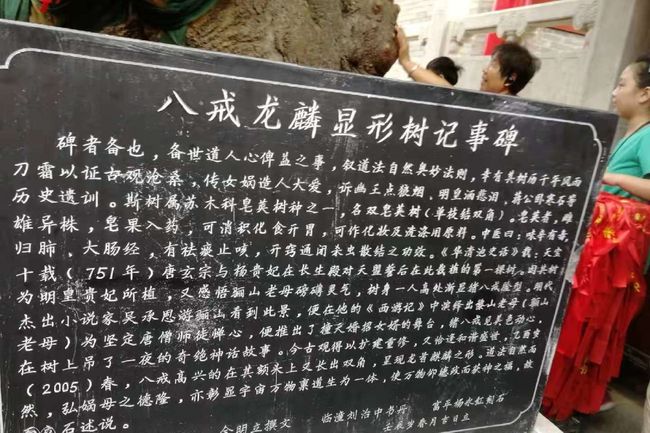 八戒龙麟显形树记事碑
碑者备也，备世道人心俾益之事，叙道法自然奥妙法则，幸有其树历千年风雨
刀霜以证古观沧桑，传女娲造人大爱，诉幽王点狼烟、明皇洒悲泪、蒋公曰寒石等
历史遗训。斯树属苏木科皂荚树种之一，名双皂荚树（单枝结双角）。皂荚者，雌
雄异株，皂果入药，可消积化食开胃，可作化妆及洗涤用原料。中医曰：味辛有毒，
归肺、大肠经，有祛痰止咳，开窍通闭杀虫散结之功效。《华清池史话》载：天宝
十载（751年）唐玄宗与杨贵妃在长生殿对天盟誓后在此栽植的第一棵树，因其树
为明皇贵妃所植，又感悟骊山老母磅礴灵气，树身一人高处渐显猪八戒脸型。明代
杰出小说家吴承恩游骊山看到此景，便在他的《西游记》中演绎出黎山老母（骊山
老母）为坚定唐僧师徒禅心，便推出了撞天婚招女婿的舞台，猪八戒见美色动心，
在树上吊了一夜的奇绝神话故事。今古观得以护建重修，又恰逢和谐盛世，乙酉
（2005）春，八戒高兴的在其额头上又长出双角，呈现龙首麒麟之形，道法自然而
然，弘娲母之德隆，亦彰显宇宙万物禀道生为一体，使万物仰德政而获神之福，故
石述说。
余明立撰文 临潼刘治中书丹 富平杨水虹刻石
壬辰岁春月吉日立